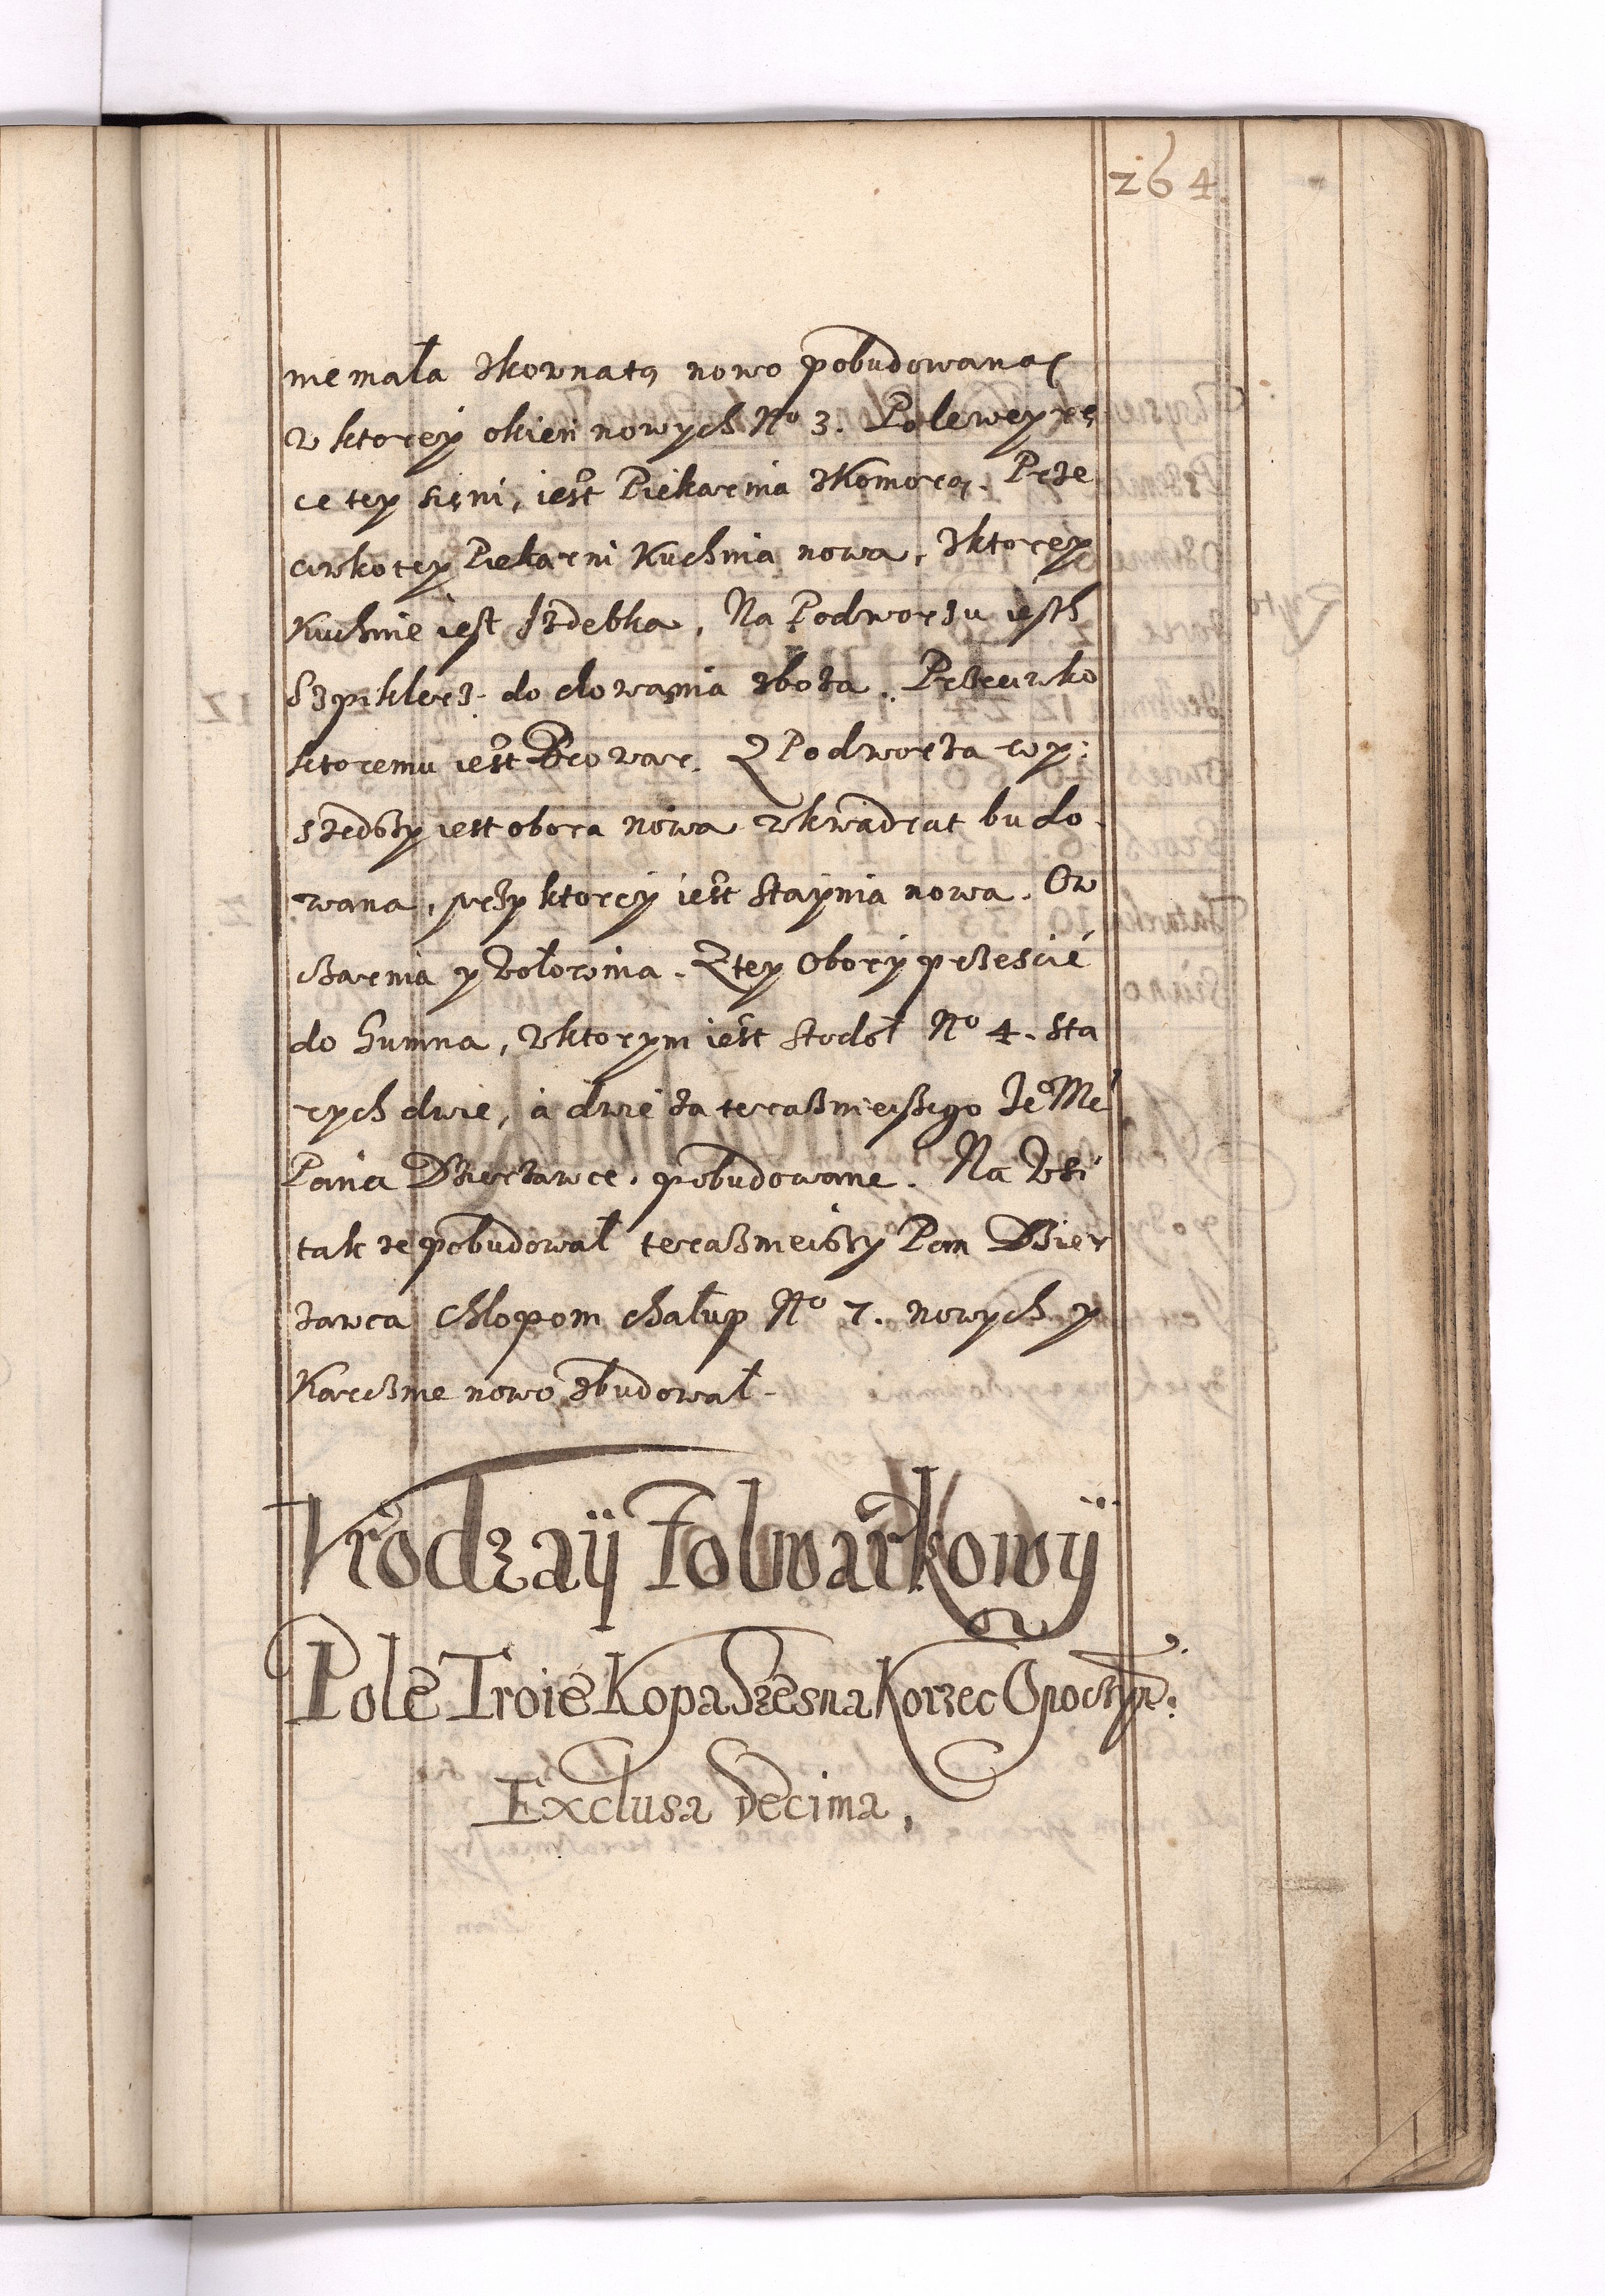 264.
niemała zkomnatą nowo pobudowaną
w ktorey okien nowych No 3. Polewey rę
ce tey sięni, iest Piekarnia zKomorą. Prze
ciwko tey Piekarni Kuchnia nowa, zktorey
Kuchnie iest Izdebka, Na Podworzu iest
Szpiklerz do chowania zboża. Przeciwko
ktoremu iest Browar. Z Podworza wy:
szedszy iest obora nowa wkwadrat budo.
wana, przy ktorey iest Staynia nowa. Ow
czarnia y Wołownia. Ztey Obory prześcié
do Gumna, wktorym iest Stodół No 4. sta
rych dwie, a dwie za teraznieiszego Je Mci
Pana Dzierżawce, pobudowane. Na Wsi
takze pobudował teraznieiszy Pan Dzier
zawca Chłopom chałup No 7. nowych y
Karczme nowo zbudował.
Vrodzaÿ Folwarkowÿ
Pole Troie Kopa Szesna Korzec Opoczn:
Exclusa Decima,